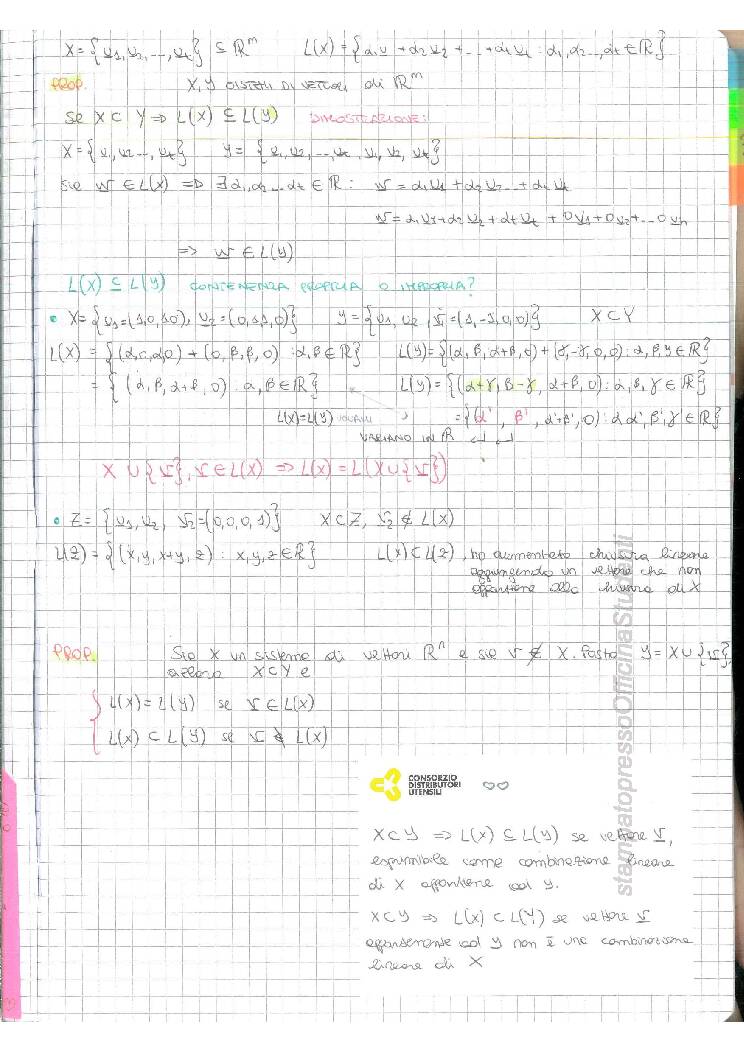 X = {u1, u2, ..., ut} ⊆ ℝᵐ L(X) = {α1 u + α2 u2 + ... + αt ut : α1, α2 ..., αt ∈ ℝ}
PROP. X, Y SISTEMI DI VETTORI di ℝᵐ
Se X ⊂ Y ⇒ L(X) ⊆ L(Y) DIMOSTRAZIONE:
X = {u1, u2 ..., ut} Y = {u1, u2, ..., ut, v1, v2, vt}
Sia w ∈ L(X) ⇒ ∃ α1, α2 ... αt ∈ ℝ : w = α1 u1 + α2 u2 ... + αt ut
w = α1 u1 + α2 u2 + αt ut + 0v1 + 0v2 + ... 0vn
⇒ w ∈ L(Y)
L(X) ⊆ L(Y) CONTENENZA PROPRIA O IMPROPRIA?
• X = {u1 = (1,0,1,0), u2 = (0,1,1,0)} Y = {u1, u2, v1 = (1,-1,0,0)} X ⊂ Y
L(X) = {(α,0,α,0) + (0,β,β,0) : α, β ∈ ℝ} L(Y) = {(α, β, α+β, 0) + (γ,-γ,0,0) : α, β, γ ∈ ℝ}
= {(α, β, α+β, 0) : α, β ∈ ℝ} L(Y) = {(α+γ, β-γ, α+β, 0) : α, β, γ ∈ ℝ}
L(X) = L(Y) UGUALI = {(α', β', α'+β', 0) : α α', β', γ ∈ ℝ}
VARIANO IN ℝ
X ∪ {v}, v ∈ L(X) ⇒ L(X) = L(X ∪ {v})
• Z = {u1, u2, v2 = (0,0,0,1)} X ⊂ Z, v2 ∉ L(X)
L(Z) = {(x, y, x+y, z) : x, y, z ∈ ℝ} L(X) ⊂ L(Z), ho aumentato chiusura lineare
aggiungendo un vettore che non
appartiene alla chiusura di X
PROP. Sia X un sistema di vettori ℝⁿ e sia v ∉ X. Posto Y = X ∪ {v},
allora X ⊂ Y e
L(X) = L(Y) se v ∈ L(X)
L(X) ⊂ L(Y) se v ∉ L(X)
CONSORZIO
DISTRIBUTORI
UTENSILI
X ⊂ Y ⇒ L(X) ⊆ L(Y) se vettore v,
esprimibile come combinazione lineare
di X appartiene ad Y.
X ⊂ Y ⇒ L(X) ⊂ L(Y) se vettore v
appartenente ad Y non è una combinazione
lineare di X
stampatopressoOfficinaStudenti